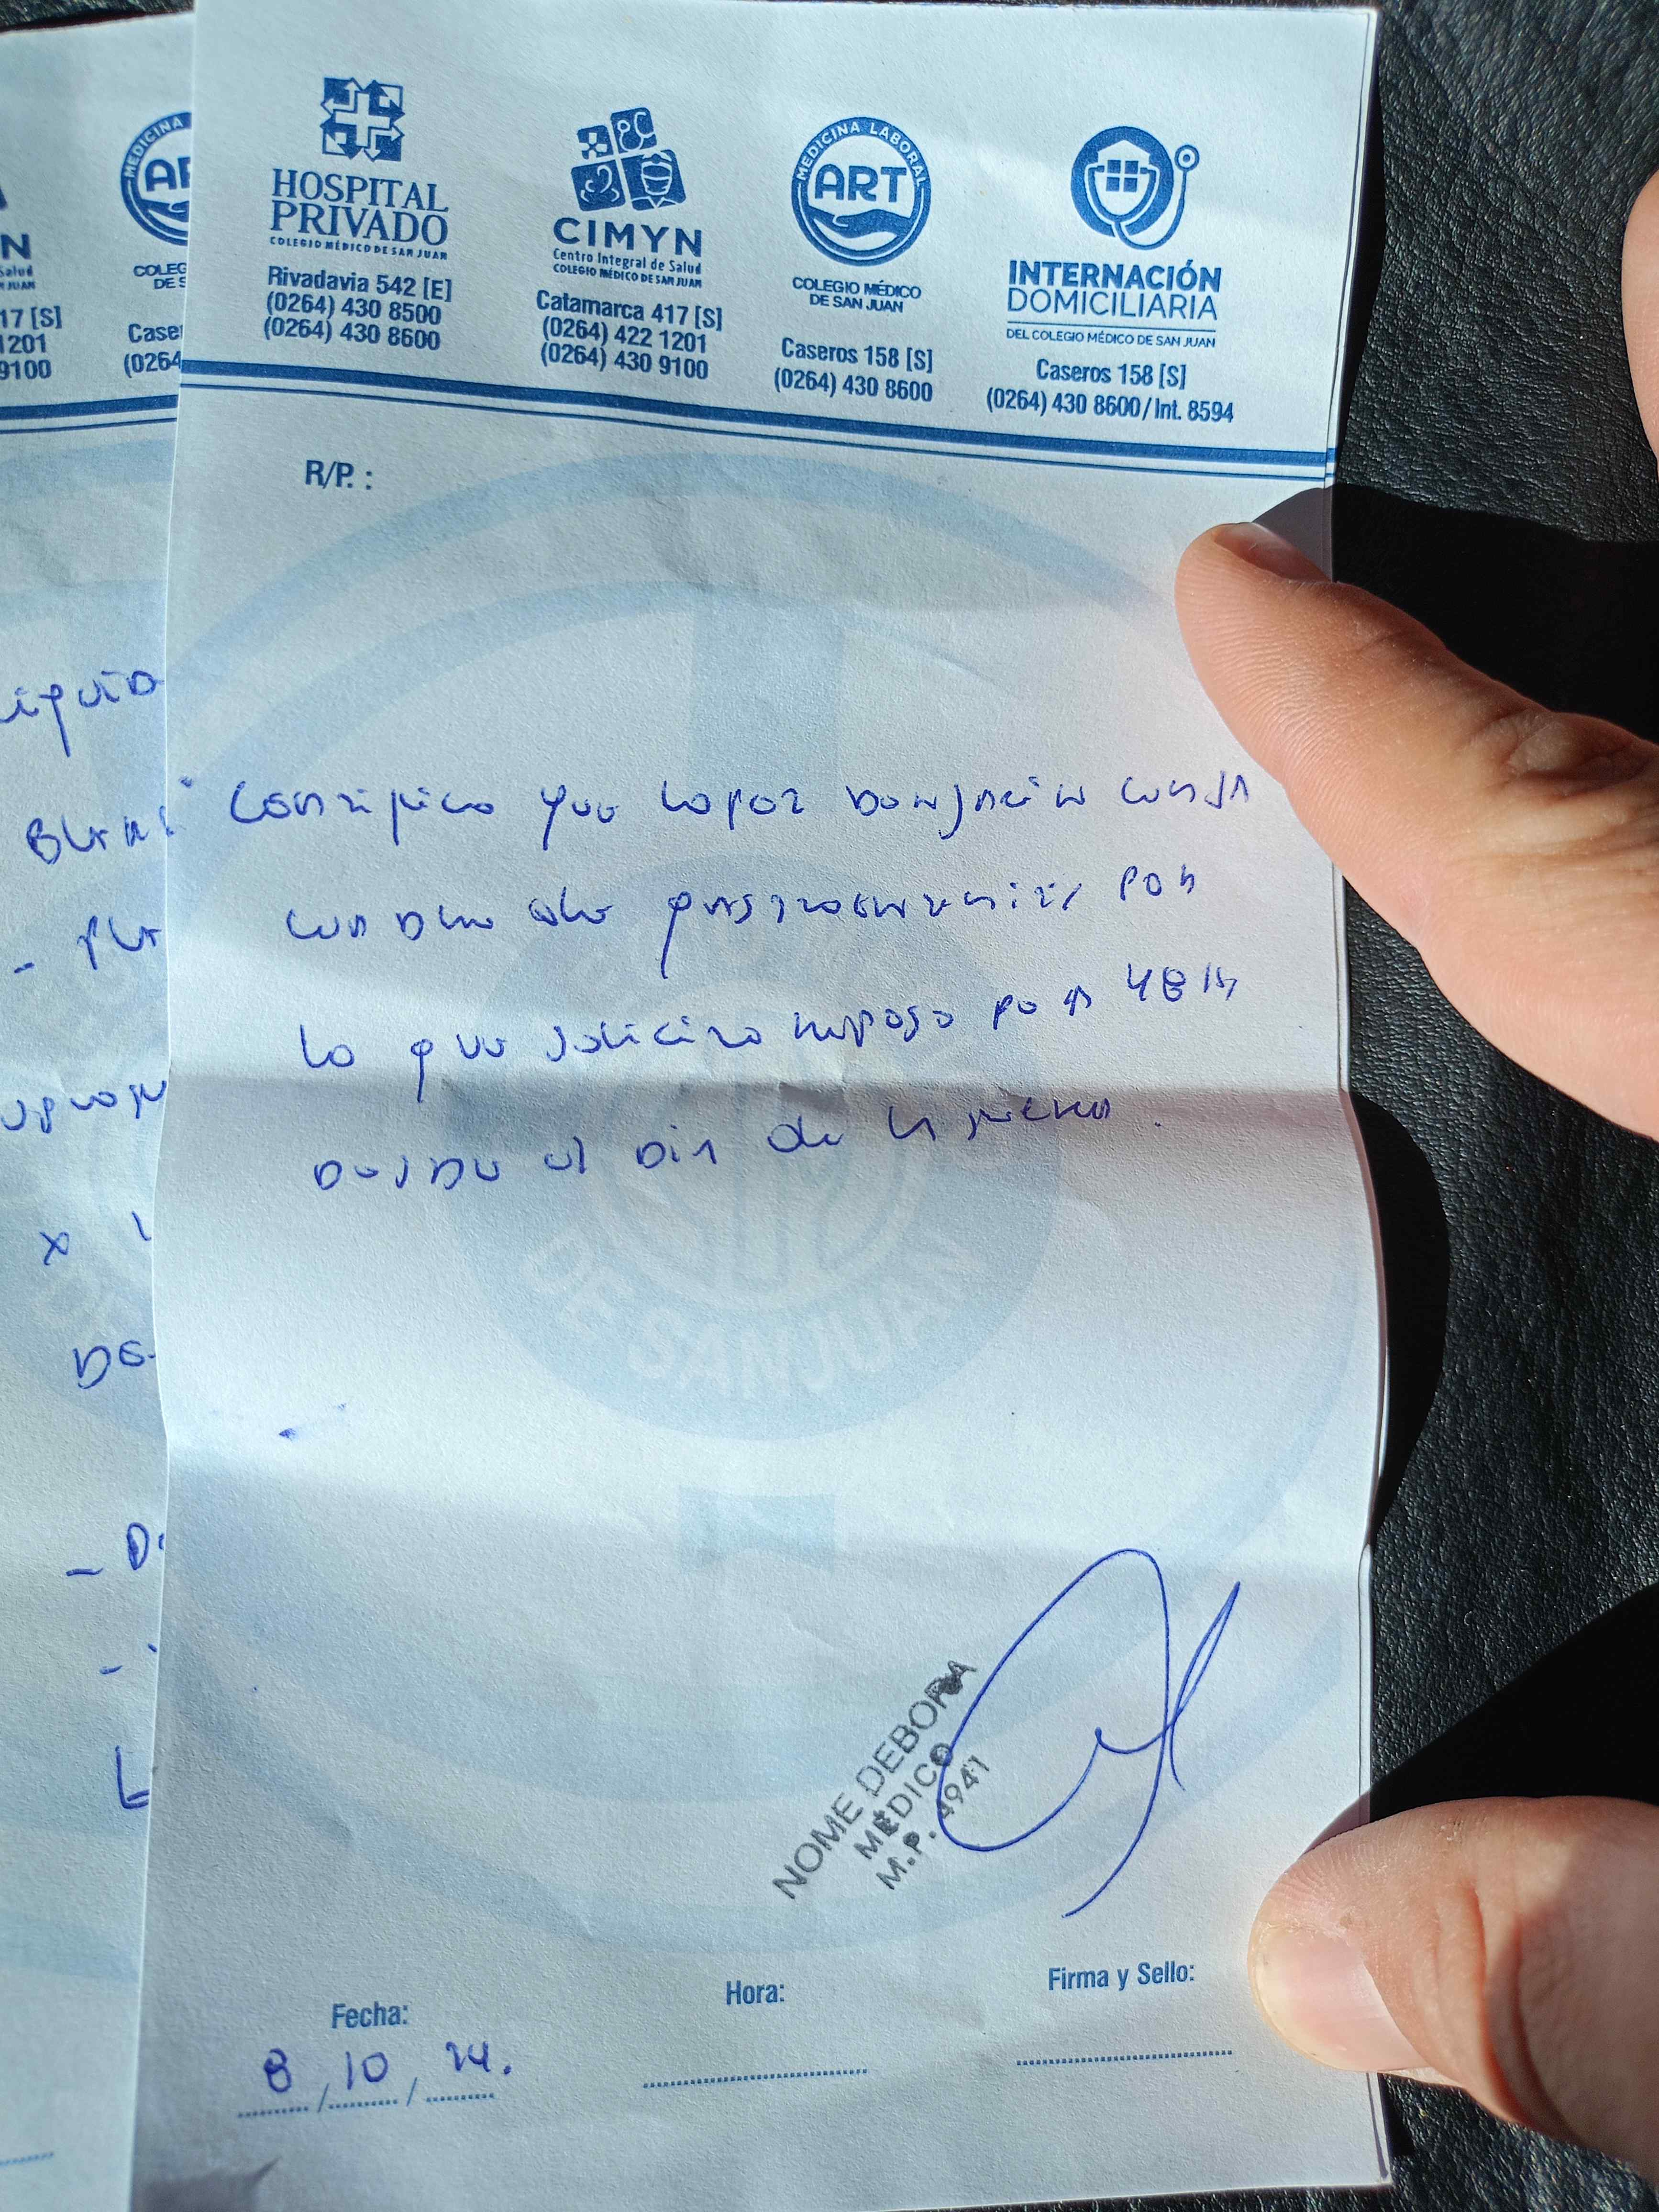 HOSPITAL
PRIVADO
COLEGIO MÉDICO DE SAN JUAN
Rivadavia 542 [E]
(0264) 430 8500
(0264) 430 8600
CIMYN
Centro Integral de Salud
COLEGIO MÉDICO DE SAN JUAN
Catamarca 417 [S]
(0264) 422 1201
(0264) 430 9100
MEDICINA LABORAL
ART
COLEGIO MÉDICO
DE SAN JUAN
Caseros 158 [S]
(0264) 430 8600
INTERNACIÓN
DOMICILIARIA
DEL COLEGIO MÉDICO DE SAN JUAN
Caseros 158 [S]
(0264) 430 8600 / Int. 8594
R/P. :
Certifico que Lopez Benjamin cursa
cuadro de gastroenteritis por
lo que solicito reposo por 48 h
desde el dia de la fecha.
DE SAN JUAN
NOME DEBORA
MÉDICO
M.P. 4941
Fecha:
8 / 10 / 24.
Hora:
Firma y Sello:
N
17 [S]
1201
9100
MEDICINA
COLEG
DE S
Case
(0264